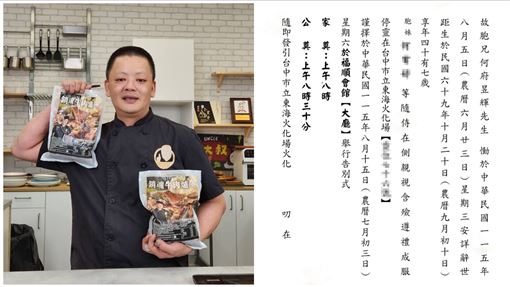 故胞兄何府昱輝先生　慟於中華民國一一五年
八月五日(農曆六月廿三日)星期三安詳辭世
距生於民國六十九年十月二十日(農曆九月初十日)
享年四十有七歲
胞妹 等隨侍在側親視含殮遵禮成服
停靈在台中市立東海火化場【】
謹擇於中華民國一一五年八月十五日(農曆七月初三日)
星期六於福順會館【大廳】舉行告別式
家　奠:上午八時
公　奠:上午八時三十分
隨即發引台中市立東海火化場火化　叨在
牛肉爐
牛肉爐